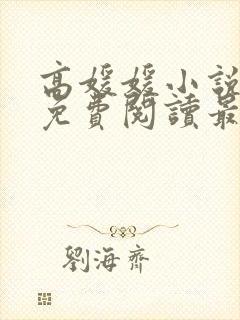 高媛媛小說
免費閱讀最
劉海齊